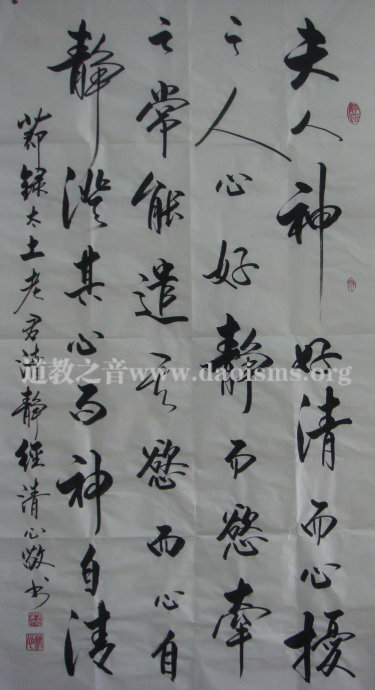 夫人神好清而心擾
之人心好靜而慾牽
之常能遣其慾而心自
靜澄其心而神自清
節録太上老君清靜經清心敬书
道教之音www.daoisms.org